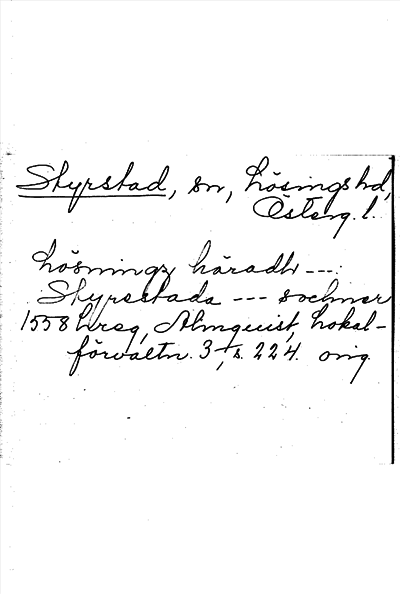 Styrstad, sn, Lösings hd,
Österg. l.
Lösningz häradh ---:
Styrestada --- sochner
1558 hrsg, Almquist, Lokal-
förvaltn. 3, s. 224. orig.